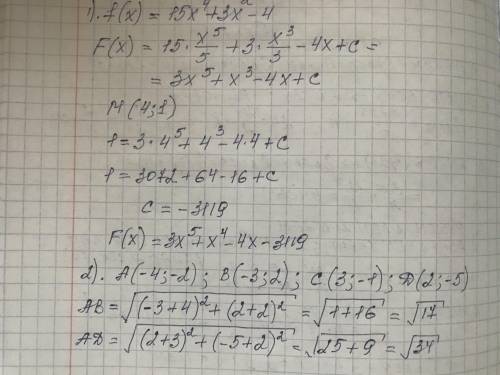 1). f(x) = 15x⁴+3x²-4
F(x) = 15·x⁵/5 + 3·x³/3 - 4x+c =
= 3x⁵+x³-4x+c
M(4;1)
1=3·4⁵+4³-4·4+C
1=3072+64-16+C
C = -3119
F(x)=3x⁵+x⁴-4x-3119
2). A(-4;-2); B(-3;2); C(3;-1); D(2;-5)
AB=√((-3+4)²+(2+2)²)=√(1+16)=√17
AD=√((2+3)²+(-5+2)²)=√(25+9)=√34